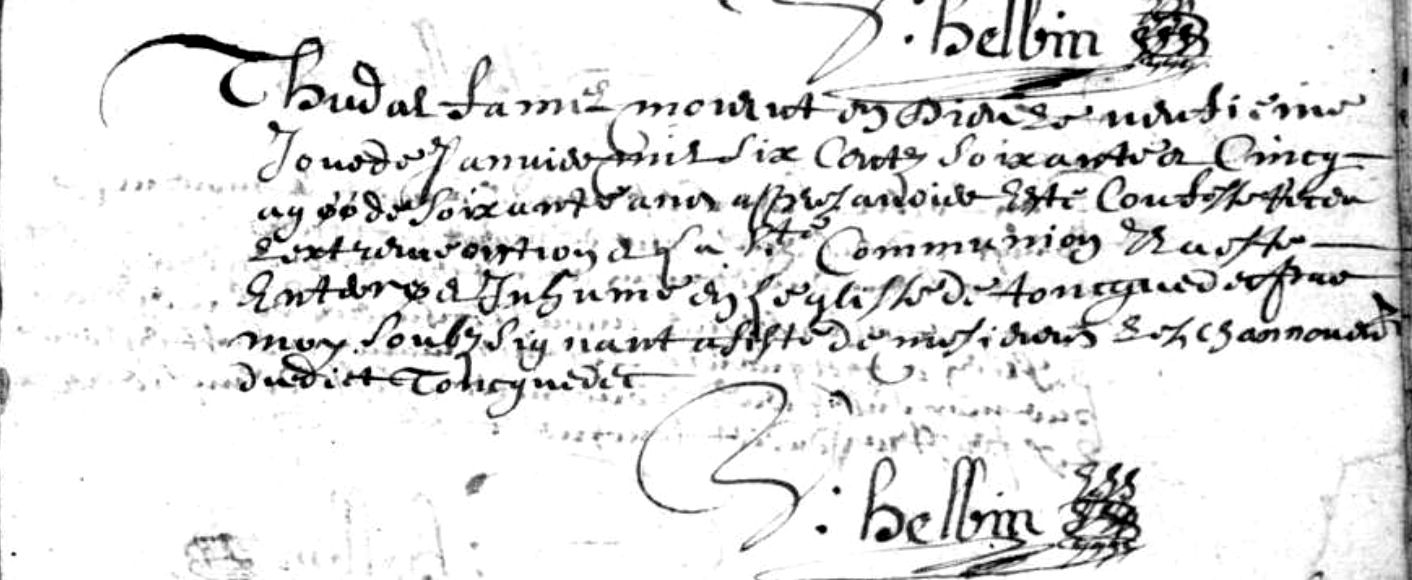 : helbin
Thudal lamer mourut en Dieu le neufieme
Jour de Janvier mil six Centz soixante et Cincq
agé de soixante ans appres avoire Esté Confessé Receu
l'extreme onction et la Ste Communion Et a esté
Enterré et Inhumé en l'eglisse de toncquedec par
moy soubz signant asisté de mesieurs les channoines
dudict Toncquedec
: helbin